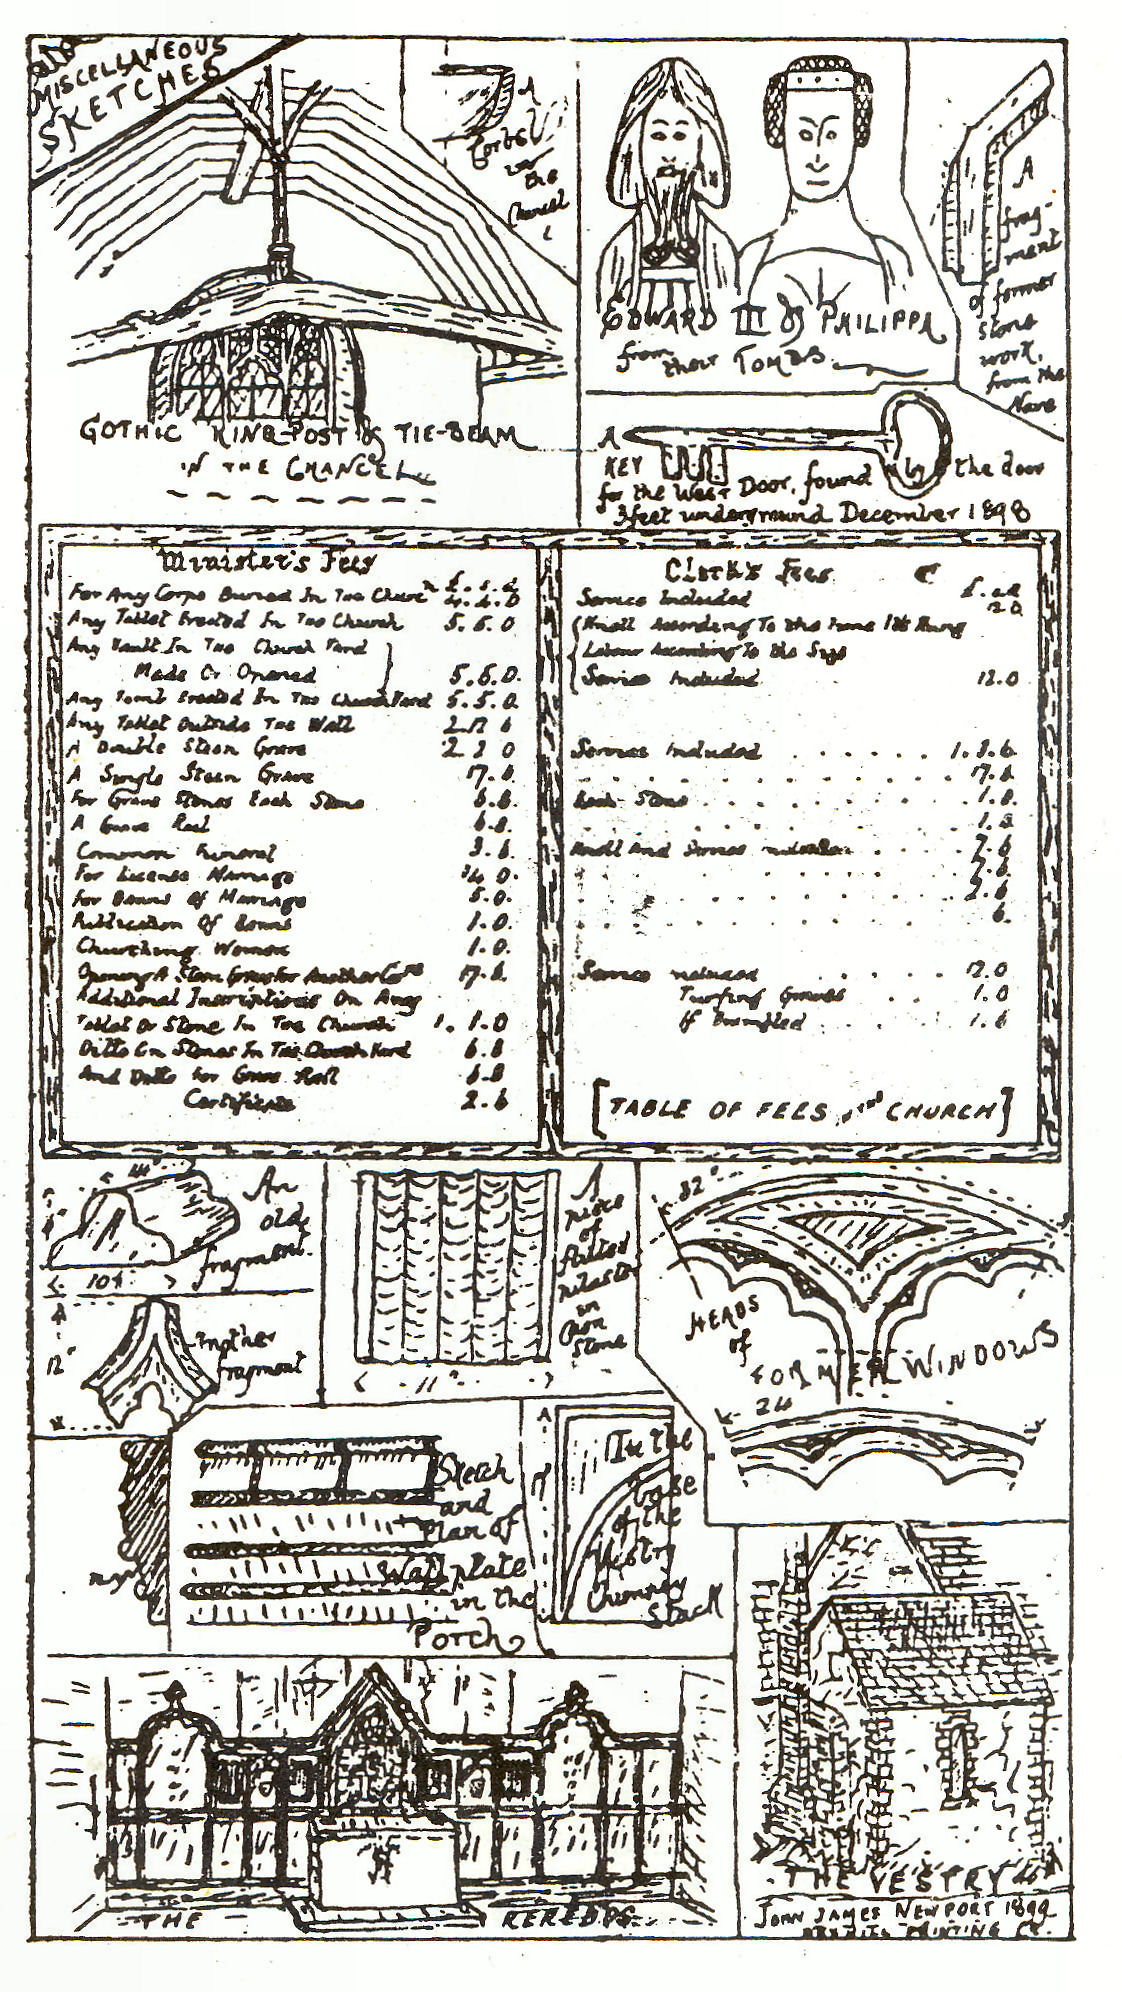 MISCELLANEOUS
SKETCHES
A
Corbel
in
the
Chancel
GOTHIC KING-POST & TIE-BEAM
IN THE CHANCEL
EDWARD III & PHILIPPA
from their TOMBS
A
frag-
ment
of former
stone
work,
from the
Nave
A
KEY
for the West Door, found by the door
3 feet underground December 1898
Minister's Fees
£. s. d
For Any Corps Buried In The Church 4. 4. 0
Any Tablet Erected In The Church 5. 5. 0
Any Vault In The Church Yard
Made Or Opened 5. 5. 0.
Any Tomb Erected In The Church Yard 5. 5. 0.
Any Tablet Outside The Wall 2 12 6
A Double Steen Grave 2 2 0
A Single Steen Grave 17. 6.
For Grave Stones Each Stone 6. 8.
A Grave Rail 6. 8.
Common Funeral 3. 6.
For License Marriage 0.
For Banns Of Marriage 5. 0.
Publication Of Banns 1. 0.
Churching Women 1. 0.
Opening A Steen Grave For Another 17. 6.
Additional Inscriptions On Any
Tablet Or Stone In The Church 1. 1. 0
Ditto On Stones In The Church Yard 6. 8
And Ditto For Grave Rail 6-8
Certificate 2. 6
Clerk's Fees
£. s d
Service Included
Knell According To the Time Its Rung
Labour According To the Size
Service Included 12. 0
Service Included 1. 1. 6.
17. 6
Each Stone 1. 0.
1. 0
Knell And Service included 7. 6
7. 6.
2. 6
6.
Service included 12. 0
Turfing Graves 1. 0
If Brambled 1. 6
[TABLE OF FEES IN THE CHURCH]
An
old
fragment.
Another
fragment
12"
A
piece
of
fluted
pilaster
in
stone
11"
32"
HEADS
of
FORMER WINDOWS
24
Sketch
and
Plan of
Wall plate
in the
PORCH
In the
base
of the
Vestry
Chimney
Stack
THE REREDOS
THE VESTRY
JOHN JAMES NEWPORT 1899
PRINTING Co.